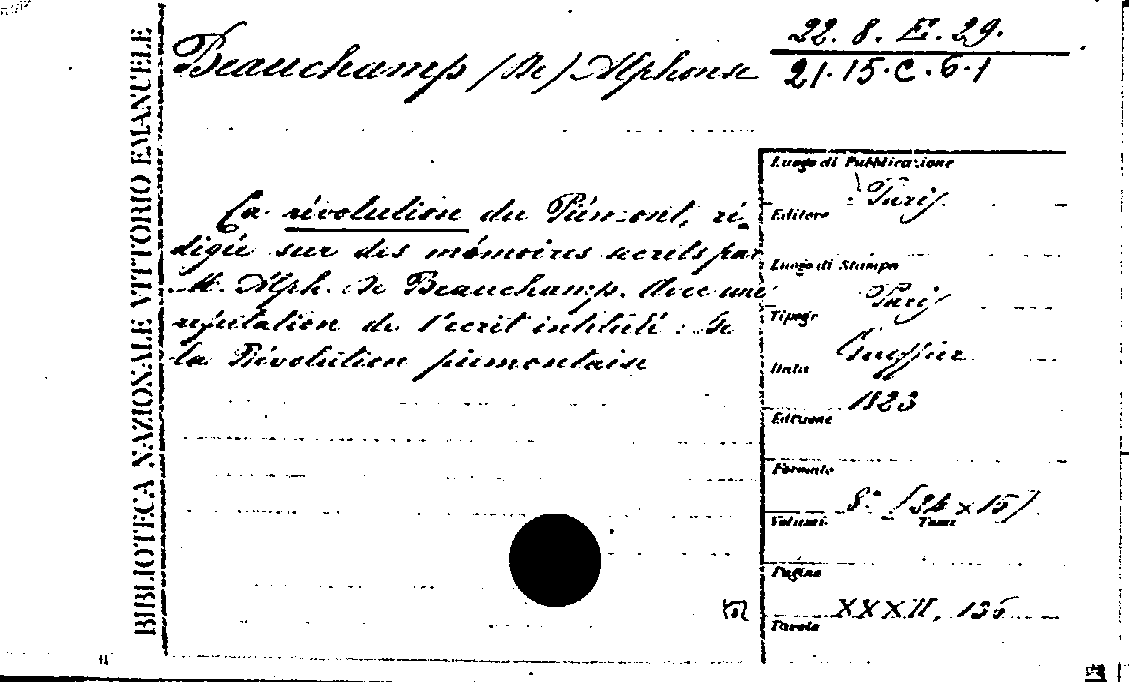 BIBLIOTECA NAZIONALE VITTORIO EMANUELE
Beauchamp (De) Alphonse
22. 8. E. 29.
21. 15. C. 6. 1
La révolution du Piémont, ré-
digée sur des mémoires secrets par
M. Alph. De Beauchamp. Avec une
refutation de l'ecrit intitulé: De
la Révolution piemontaise
Luogo di Pubblicazione
Paris
Editore
Luogo di Stampa
Paris
Tipogr
Data
1823
Edizione
Formato
8°
Volumi
Tomi
Pagine
XXXII, 136
Tavole